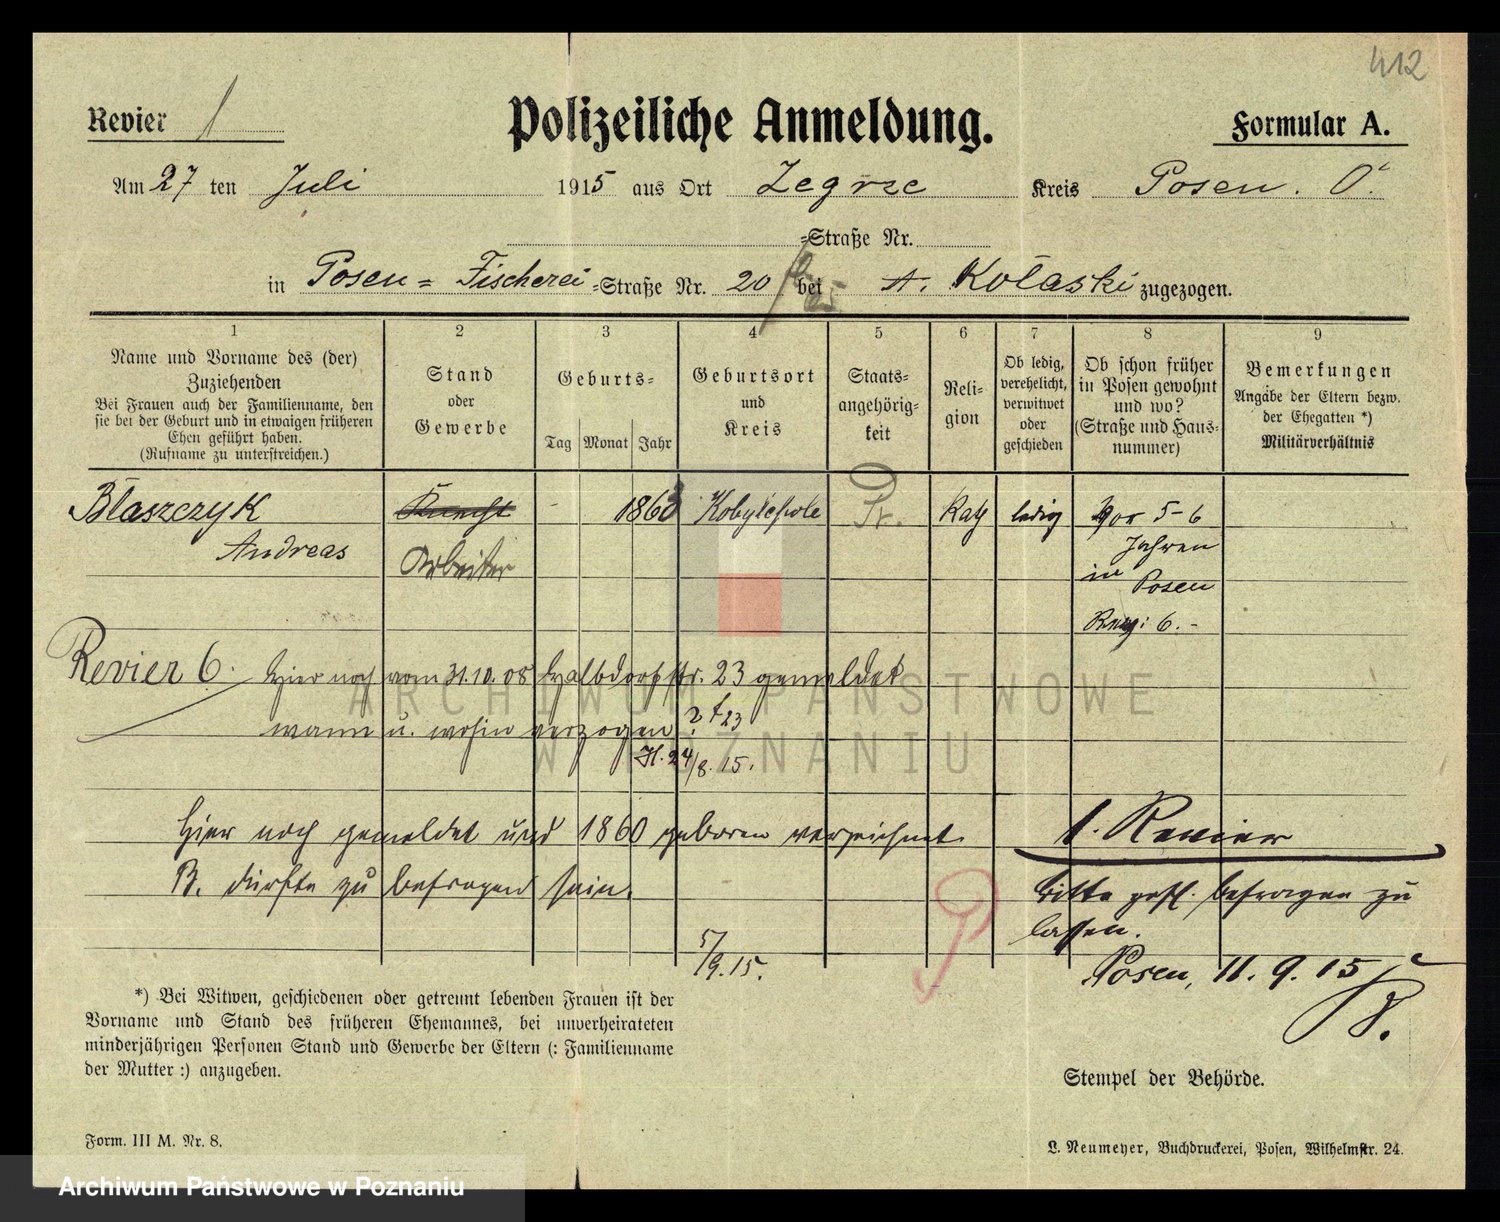 412
Revier 1
Polizeiliche Anmeldung.
Formular A.
Am 27 ten Juli 1915 aus Ort Zegrze Kreis Posen. O.
=Straße Nr.
in Posen= Fischerei =Straße Nr. 20 bei A. Kolaski zugezogen.
1
Name und Vorname des (der)
Zuziehenden
Bei Frauen auch der Familienname, den
sie bei der Geburt und in etwaigen früheren
Ehen geführt haben.
(Rufname zu unterstreichen.)
2
Stand
oder
Gewerbe
3
Geburts=
Tag Monat Jahr
4
Geburtsort
und
Kreis
5
Staats-
angehörig-
keit
6
Reli-
gion
7
Ob ledig,
verehelicht,
verwitwet
oder
geschieden
8
Ob schon früher
in Posen gewohnt
und wo?
(Straße und Haus-
nummer)
9
Bemerkungen
Angabe der Eltern bezw.
der Ehegatten *)
Militärverhältnis
Błaszczyk
Andreas
Knecht
Arbeiter
- 1863
Kobylepole
Pr.
Kath
ledig
vor 5-6
Jahren
in Posen
Rev: 6.-
Revier 6. Hier noch vom 31.10.08 Halbdorfstr. 23 gemeldet
wann u. wohin verzogen?
23
24/8. 15.
Hier noch gemeldet und 1860 geboren verzeichnet
B. dürfte zu befragen sein.
5/9.15.
1. Revier
bitte gefl. befragen zu
lassen.
Posen, 11. 9. 15
*) Bei Witwen, geschiedenen oder getrennt lebenden Frauen ist der
Vorname und Stand des früheren Ehemannes, bei unverheirateten
minderjährigen Personen Stand und Gewerbe der Eltern (: Familienname
der Mutter :) anzugeben.
Stempel der Behörde.
Form. III M. Nr. 8.
L. Neumeyer, Buchdruckerei, Posen, Wilhelmstr. 24.
ARCHIWUM PAŃSTWOWE
W POZNANIU
Archiwum Państwowe w Poznaniu